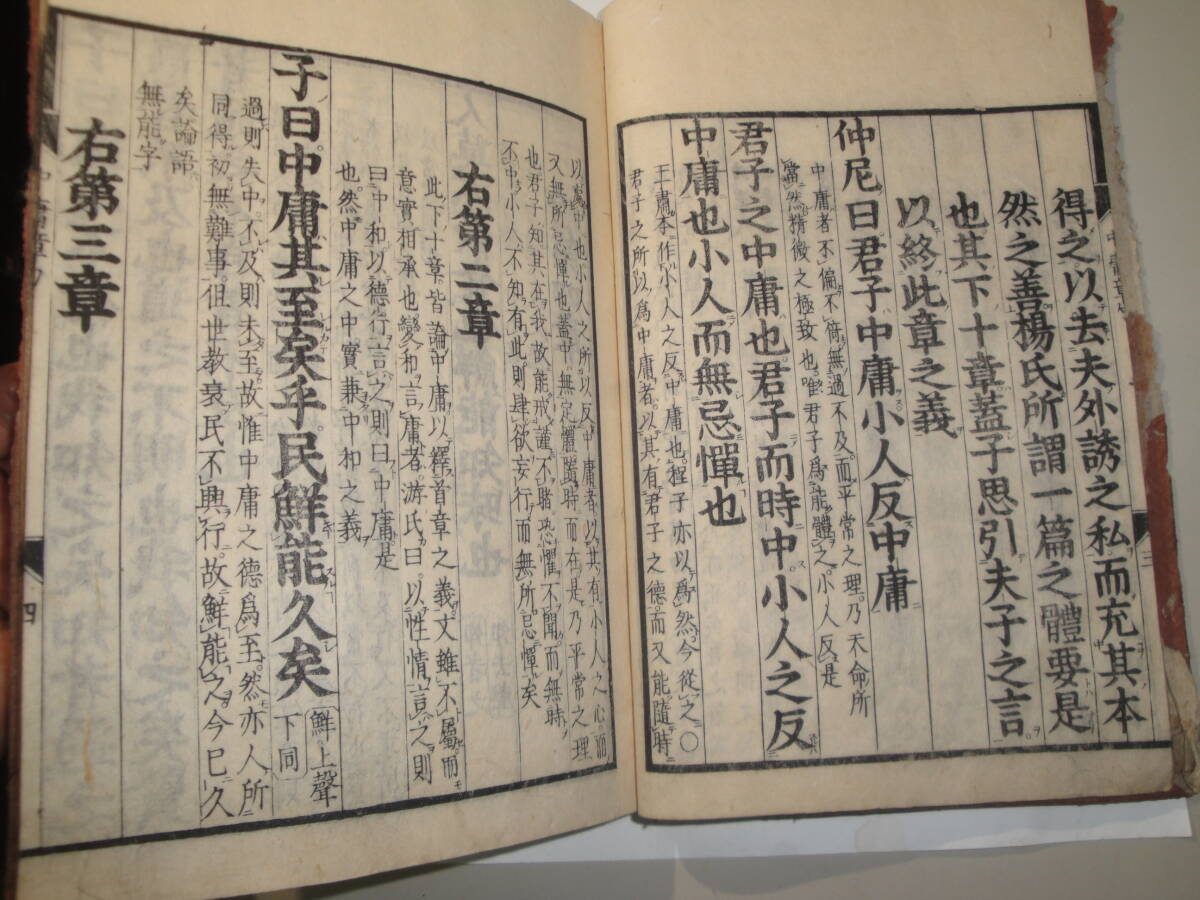 得之以去夫外誘之私而充其本
然之善楊氏所謂一篇之體要是
也其下十章蓋子思引夫子之言
以終此章之義
仲尼曰君子中庸小人反中庸
中庸者不偏不倚無過不及而平常之理乃天命所
當然精微之極致也唯君子爲能體之小人反是
君子之中庸也君子而時中小人之反
中庸也小人而無忌憚也
王肅本作小人之反中庸也程子亦以爲然今從之〇
君子之所以爲中庸者以其有君子之德而又能隨時
以處中也小人之所以反中庸者以其有小人之心而
又無所忌憚也蓋中無定體隨時而在是乃平常之理
也君子知其在我故能戒謹不睹恐懼不聞而無時
不中小人不知有此則肆欲妄行而無所忌憚矣
右第二章
此下十章皆論中庸以釋首章之義文雖不屬而
意實相承也變和言庸者游氏曰以性情言之則
曰中和以德行言之則曰中庸是
也然中庸之中實兼中和之義
子曰中庸其至矣乎民鮮能久矣
鮮上聲
下同
過則失中不及則未至故惟中庸之德爲至然亦人所
同得初無難事但世教衰民不興行故鮮能之今已久
矣論語
無能字
右第三章
四